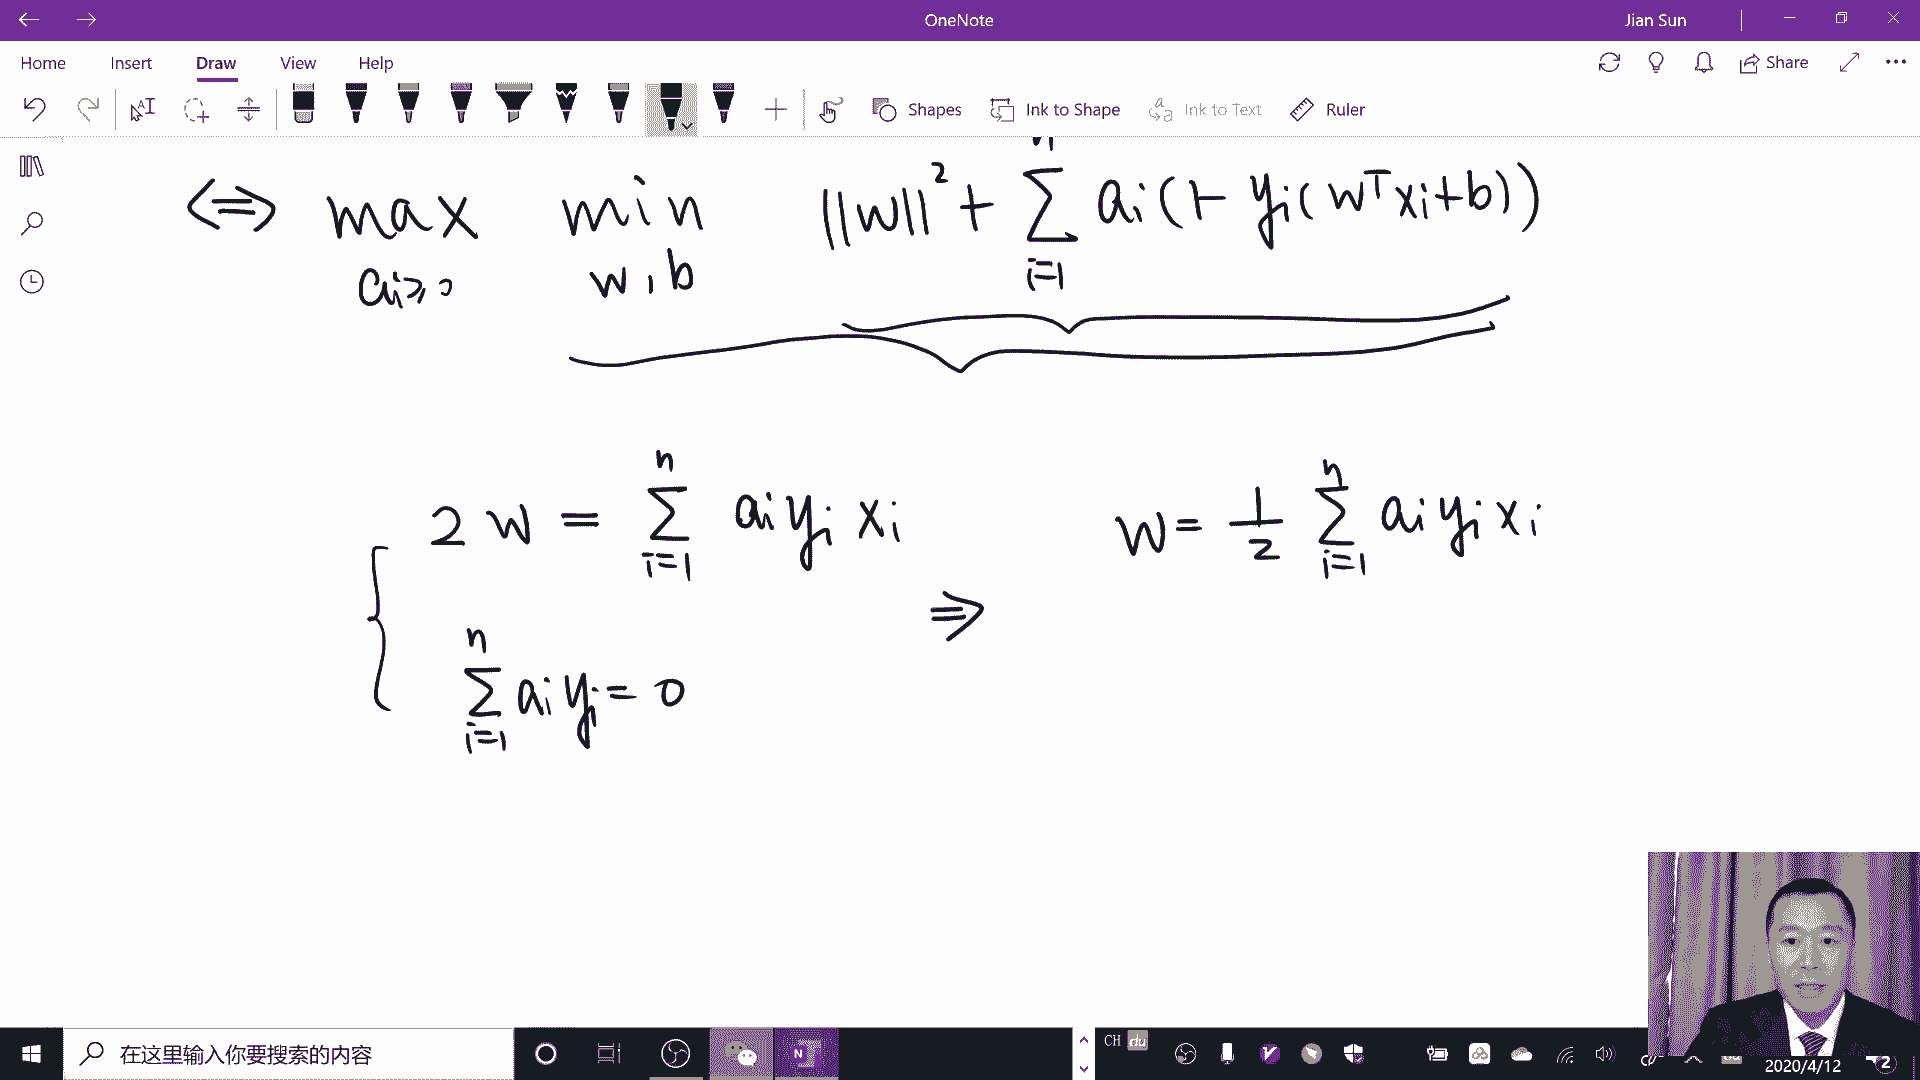 OneNote
Jian Sun
Home Insert Draw View Help
Share
Shapes Ink to Shape Ink to Text Ruler
⇔ max min ||w||² + ∑ aᵢ(1- yᵢ(wᵀxᵢ+b))
aᵢ≥0 w,b i=1
n n
2w = ∑ aᵢyᵢxᵢ w = 1/2 ∑ aᵢyᵢxᵢ
i=1 i=1
⇒
n
∑ aᵢyᵢ = 0
i=1
在这里输入你要搜索的内容
N
CH du
2020/4/12
2